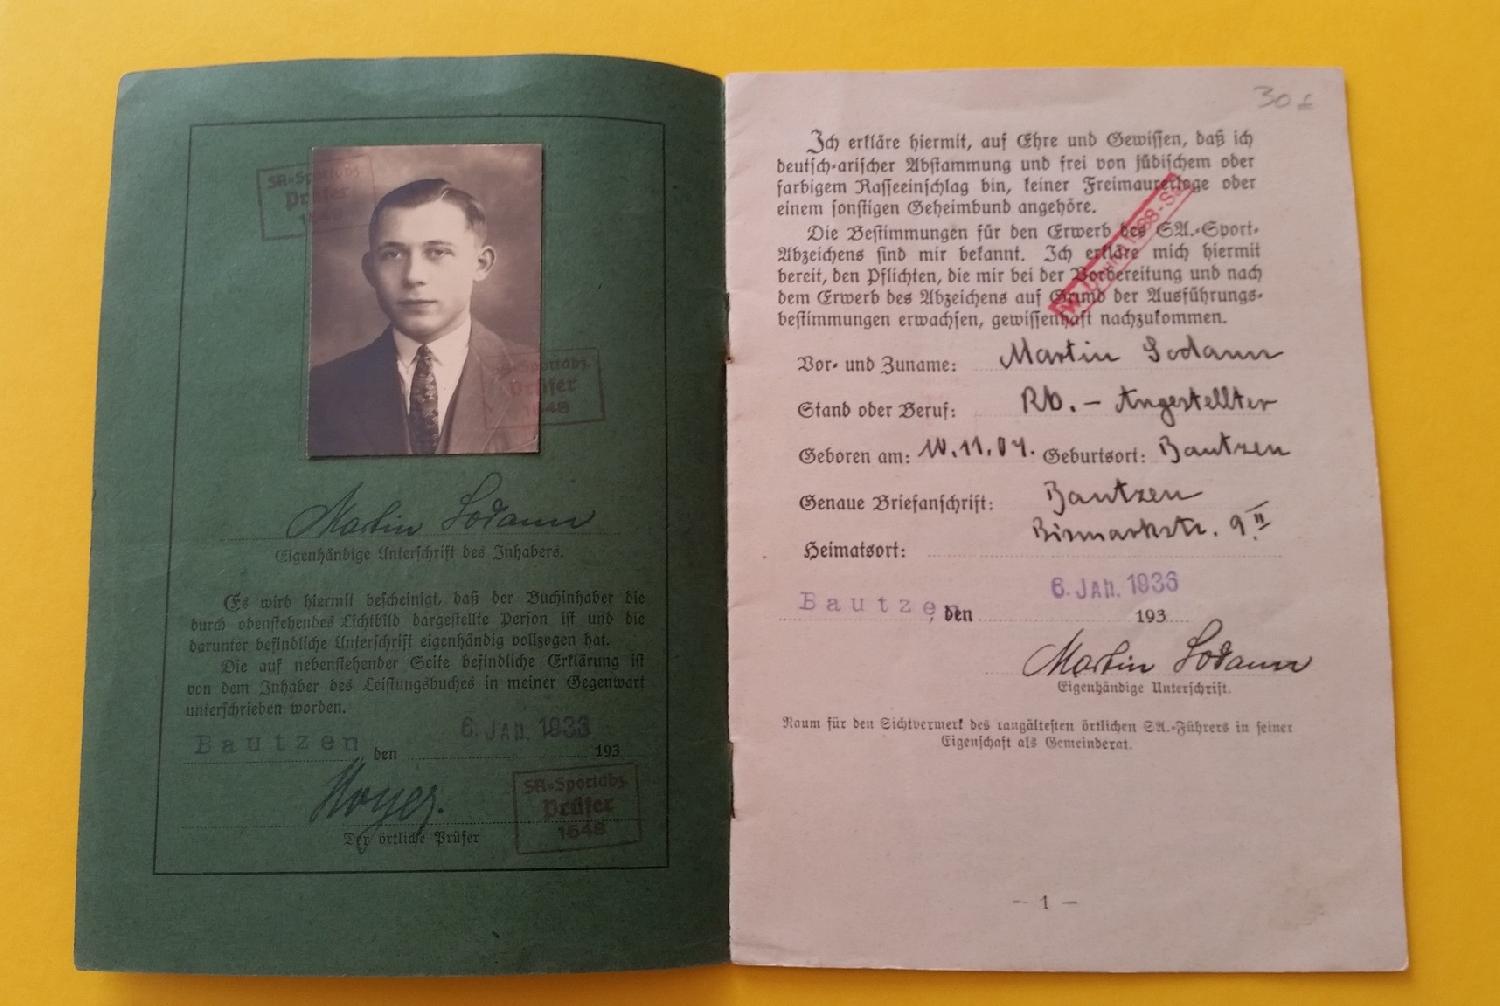 SA-Sportabz.
Prüfer
1648
SA-Sportabz.
Prüfer
1648
Martin Sodann
Eigenhändige Unterschrift des Inhabers.
Es wird hiermit bescheinigt, daß der Buchinhaber die
durch obenstehendes Lichtbild dargestellte Person ist und die
darunter befindliche Unterschrift eigenhändig vollzogen hat.
Die auf nebenstehender Seite befindliche Erklärung ist
von dem Inhaber des Leistungsbuches in meiner Gegenwart
unterschrieben worden.
Bautzen, den 6. JAN. 1936 193
Hoyer.
Der örtliche Prüfer
SA-Sportabz.
Prüfer
1648
30
Ich erkläre hiermit, auf Ehre und Gewissen, daß ich
deutsch-arischer Abstammung und frei von jüdischem oder
farbigem Rasseeinschlag bin, keiner Freimaurerloge oder
einem sonstigen Geheimbund angehöre.
Die Bestimmungen für den Erwerb des SA.-Sport-
Abzeichens sind mir bekannt. Ich erkläre mich hiermit
bereit, den Pflichten, die mir bei der Vorbereitung und nach
dem Erwerb des Abzeichens auf Grund der Ausführungs-
bestimmungen erwachsen, gewissenhaft nachzukommen.
Vor- und Zuname: Martin Sodann
Stand oder Beruf: Rb.-Angestellter
Geboren am: 10.11.04. Geburtsort: Bautzen
Genaue Briefanschrift: Bautzen
Bismarkstr. 9 II
Heimatsort:
Bautzen, den 6. JAN. 1936 193
Martin Sodann
Eigenhändige Unterschrift.
Raum für den Sichtvermerk des rangältesten örtlichen SA.-Führers in seiner
Eigenschaft als Gemeinderat.
- 1 -